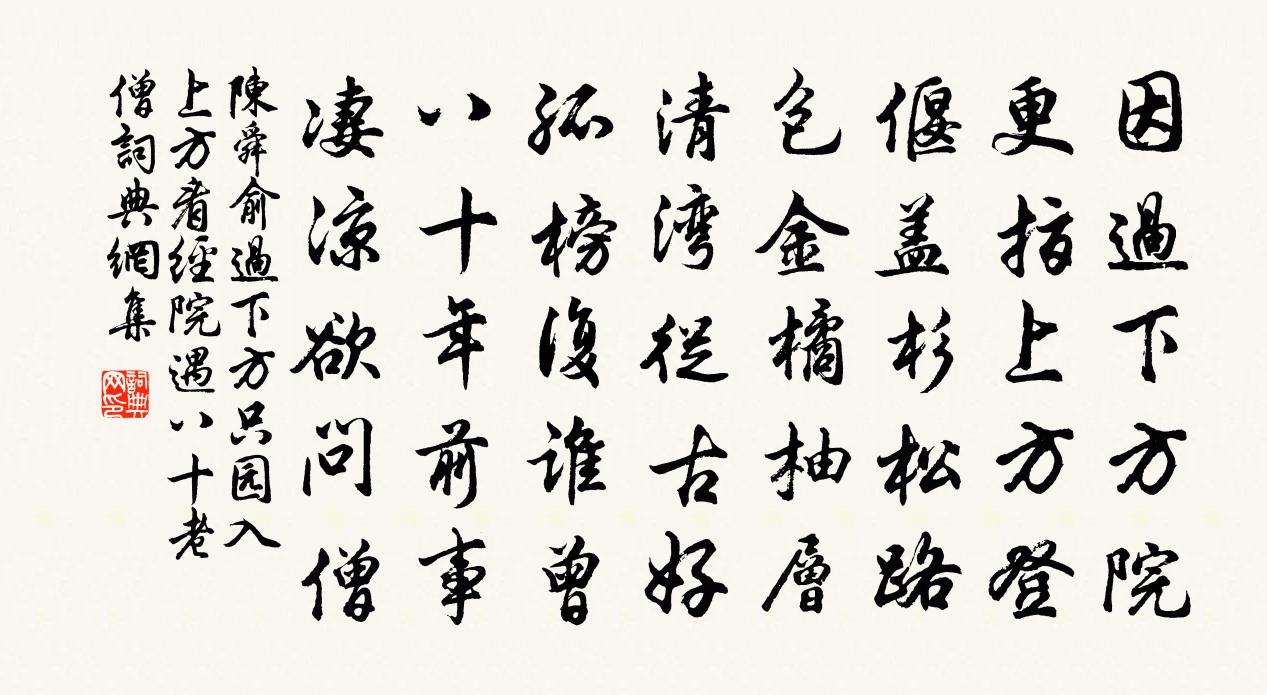 因過下方院
更指上方登
偃盖杉松路
包金橘柚層
清湾從古好
孤榜復誰曾
八十年前事
凄涼欲問僧
陳舜俞過下方只园入
上方看經院遇八十老
僧詞典網集
詞典
网印